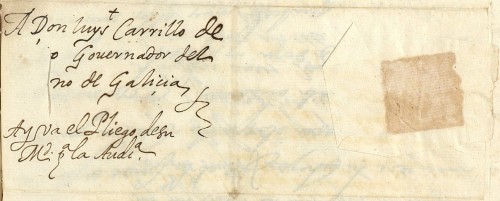 †
A Don luys Carrillo de
o Governador del
no de Galicia
Ay va el Pliego de su
Mᵈ. pᵃ la Audᵃ.